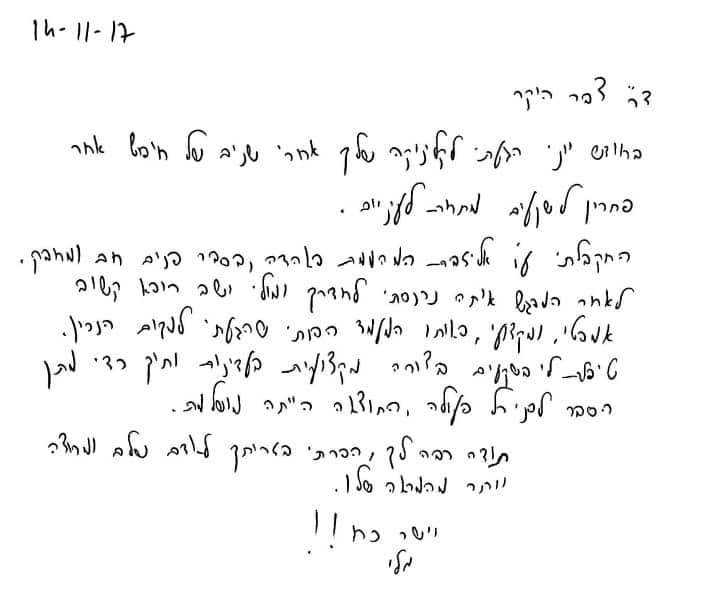 14-11-17
ד"ר צבר היקר
בחודש יוני הגעתי לקליניקה שלך אחרי שנים של חיפוש אחר
פתרון לשקעים מתחת לעיניים.
התקבלתי ע"י אליזבת המהממת באהדה, בסבר פנים חם ומחבק.
לאחר המפגש איתה נכנסתי לחדרך ומולי ישב רופא קשוב
אמפטי, ומקצועי, באותו המעמד הבנתי שהגעתי למקום הנכון.
טיפלת לי בשקעים בצורה מקצועית בעדינות ותוך כדי מתן
הסבר לפני כל פעולה, התוצאה הייתה מושלמת.
תודה רבה לך, הפכתי בזכותך לאדם שלם ומרוצה
יותר מהמראה שלו.
יישר כח!!
מלי